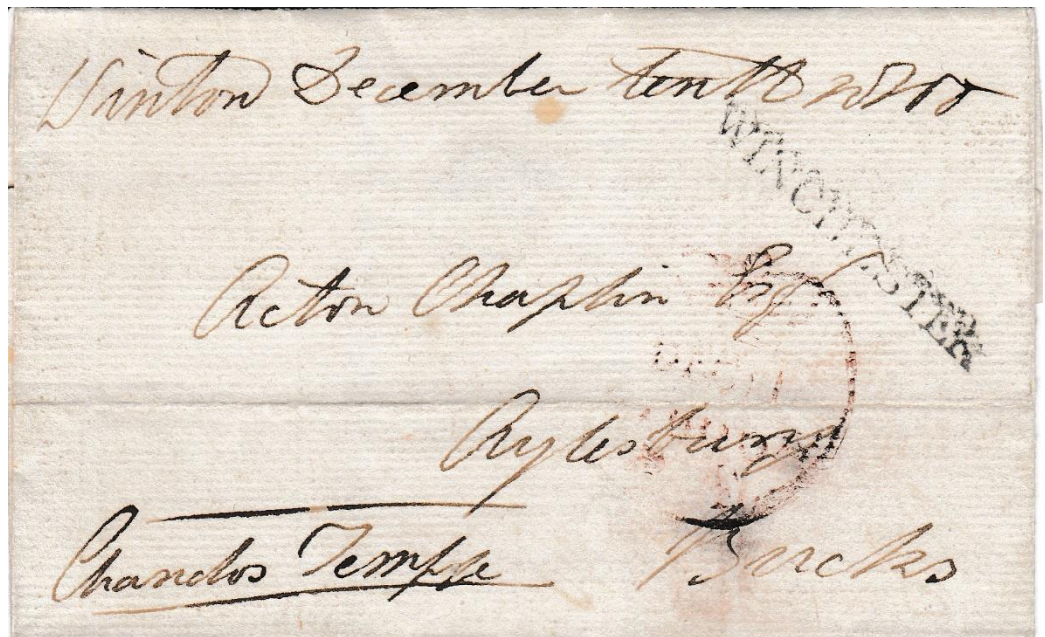 Winton December tenth 1800
WINCHESTER
Acton Chaplin Esq
Aylesbury
Chandos Temple
Bucks